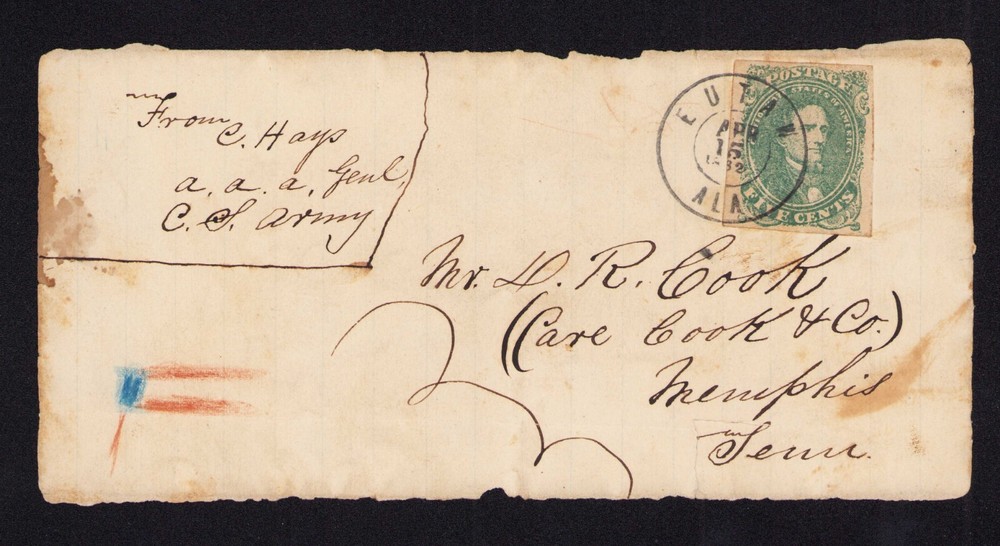 From
C. Hays
a. a. a. Genl.
C. S. Army
EUTAW
APR
15
1862
ALA
POSTAGE
STATES OF AMERICA
FIVE CENTS
Mr. D. R. Cook
(Care Cook & Co.)
Memphis
Tenn.